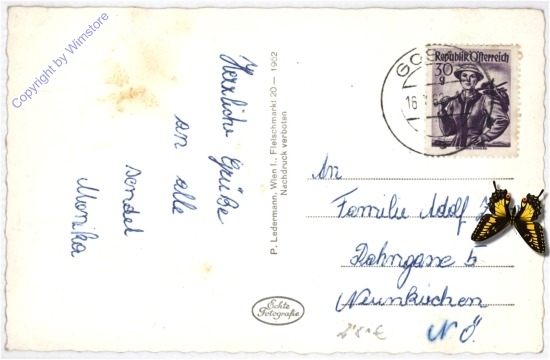 Copyright by Wimstore
Herzliche Grüße
an alle
sendet
Monika
P. Ledermann, Wien I., Fleischmarkt 20 — 1962
Nachdruck verboten
Echte
Fotografie
GOS
16.
Republik Österreich
30
g
An
Familie Adolf
Rohrgasse 5
Neunkirchen
N.Ö.